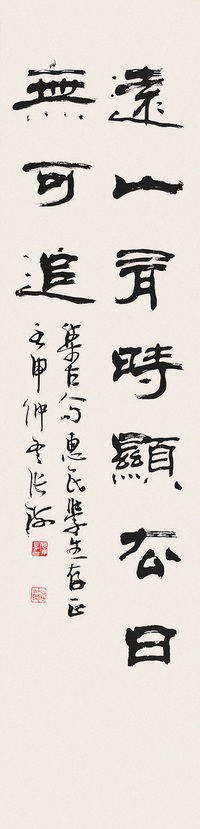 遠山有時顯去日
無可追
集古句惠民學生存正
壬申仲冬張海